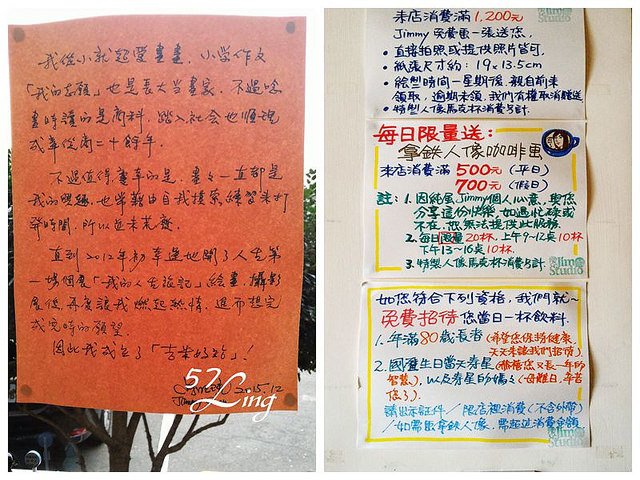 我從小就超愛畫畫．小學作文
「我的志願」也是長大當畫家．不過唸
書時讀的是商科，踏入社會也順理
成章從商二十餘年．
不過值得慶幸的是．畫畫一直都是
我的興趣，也常藉由自我摸索練習來打
發時間．所以從未荒廢．
直到2012年初幸運地開了人生第
一場個展「我的人生旅記」繪畫．攝影
展後．再度讓我燃起熱情．進而想完
成兒時的願望
因此我成立了「吉米好站」！
2015.12
52Ling
本店消費滿1,200元
Jimmy免費畫一張送您．
• 直接拍照或提供照片皆可．
• 紙張尺寸約：19x13.5cm
• 繪製時間一星期後，親自前來
領取，逾期未領．我們有權取消贈送
• 特製人像馬克杯消費另計．
Jim Studio
每日限量送：
拿鐵人像咖啡画
本店消費滿500元（平日）
700元（假日）
註：1. 因純屬Jimmy個人心意，與您
分享這份快樂，如遇忙碌或
不在，恕無法提供此服務．
2. 每日限量20杯，上午9~12点10杯
下午13~16点10杯．
3. 特製人像馬克杯消費另計．
Jim Studio
如您符合下列資格，我們就～
免費招待您當日一杯飲料．
1. 年滿80歲長者（希望您保持健康，
天天來讓我們招待）
2. 國曆生日當天壽星（恭禧您又長一年的
智慧），以及壽星的媽媽（母難日，辛苦
您了）．
請出示証件／限店裡消費（不含外帶）
／如需畫拿鐵人像，需超過消費金額
Jim Studio